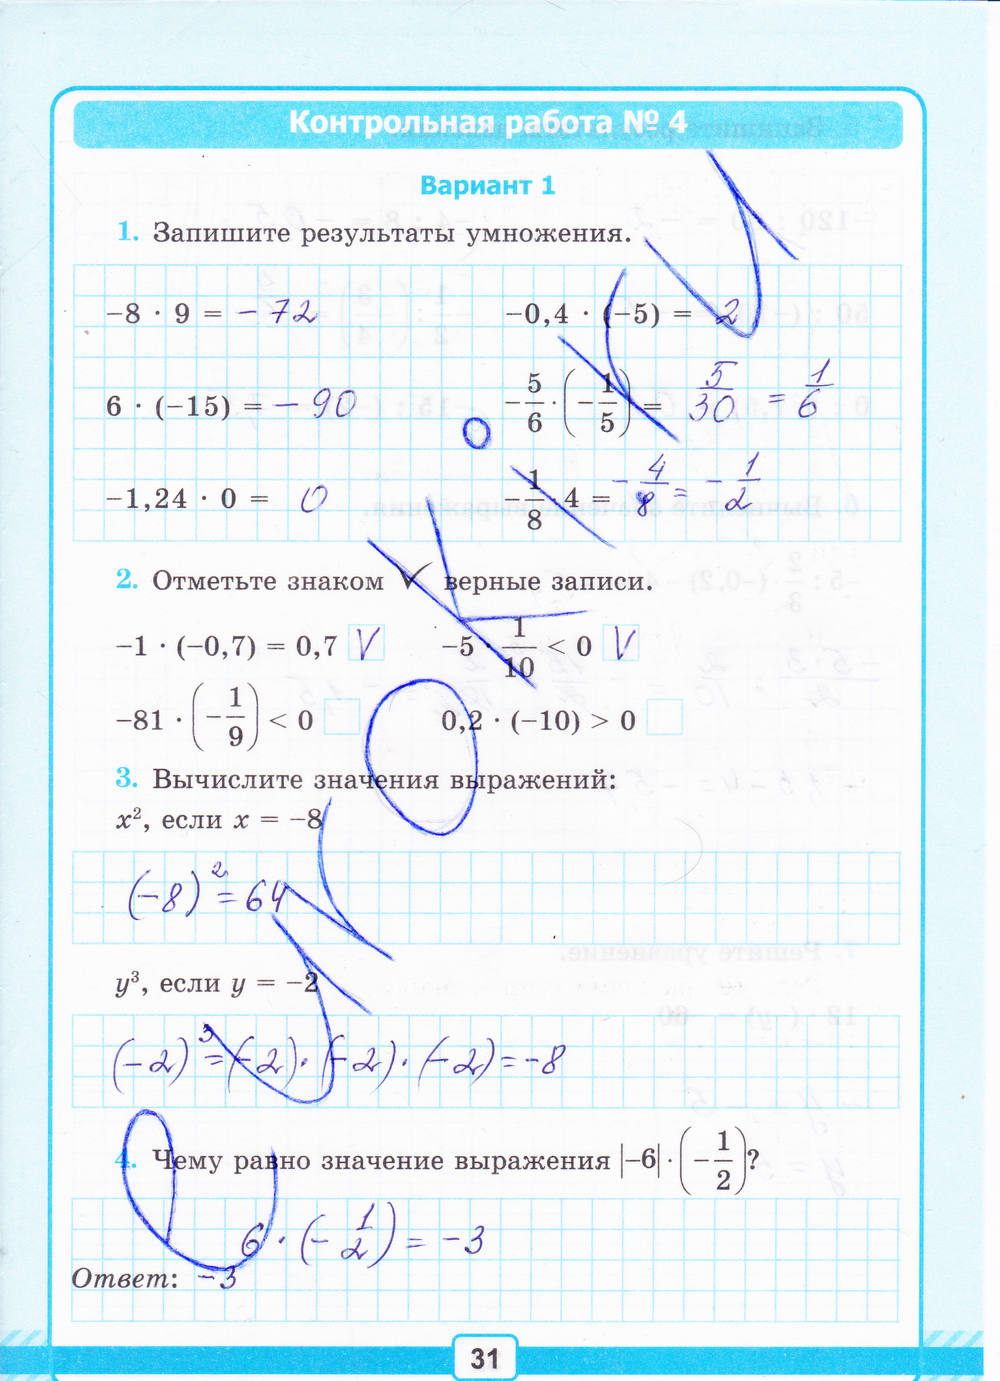 Контрольная работа № 4
Вариант 1
1. Запишите результаты умножения.
−8 · 9 = −72
−0,4 · (−5) = 2
6 · (−15) = −90
−5/6 · (−1/5) = 5/30 = 1/6
−1,24 · 0 = 0
−1/8 · 4 = −4/8 = −1/2
2. Отметьте знаком √ верные записи.
−1 · (−0,7) = 0,7 V
−5 · 1/10 < 0 V
−81 · (−1/9) < 0
0,2 · (−10) > 0
3. Вычислите значения выражений:
x², если x = −8
(−8)² = 64
y³, если y = −2
(−2)³ = (−2) · (−2) · (−2) = −8
4. Чему равно значение выражения |−6| · (−1/2)?
6 · (−1/2) = −3
Ответ: −3
31